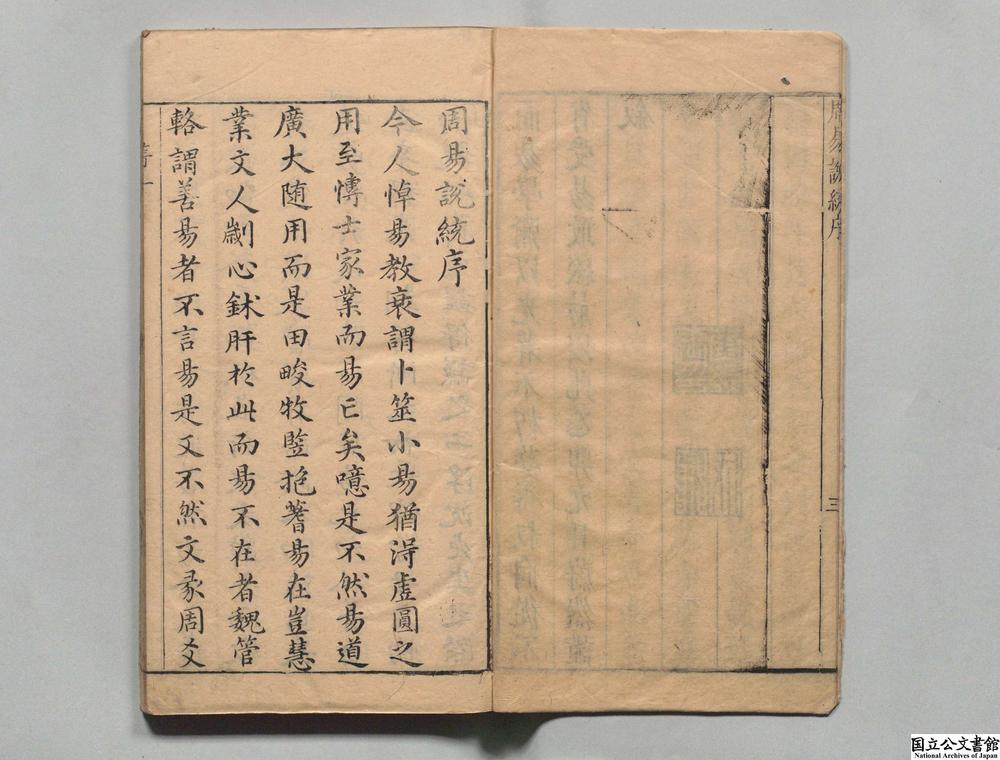 周易說統序
三
周易說統序
今人悼易教衰謂卜筮小易猶淂虛圓之
用至慱士家業而易亡矣噫是不然易道
廣大随用而是田畯牧豎抱蓍易在豈慧
業文人劌心鉥肝於此而易不在者魏管
輅謂善易者不言易是又不然文彖周爻
序一
国立公文書館
National Archives of Japan